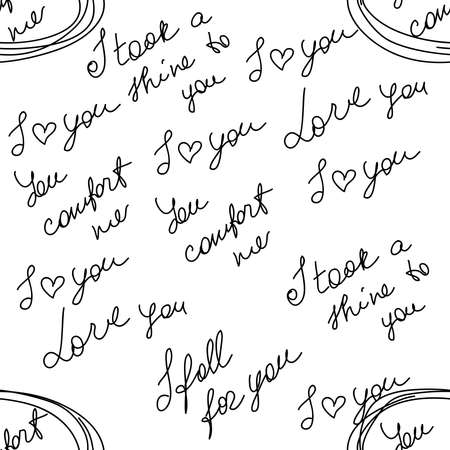 comfort
me
I took a
shine to
you
I ♡ you
Love you
I ♡ you
I ♡ you
I ♡ you
You
comfort
me
You
comfort
me
I ♡ you
I took a
shine to
you
Love you
I fall
for you
I ♡ you
comfort
You